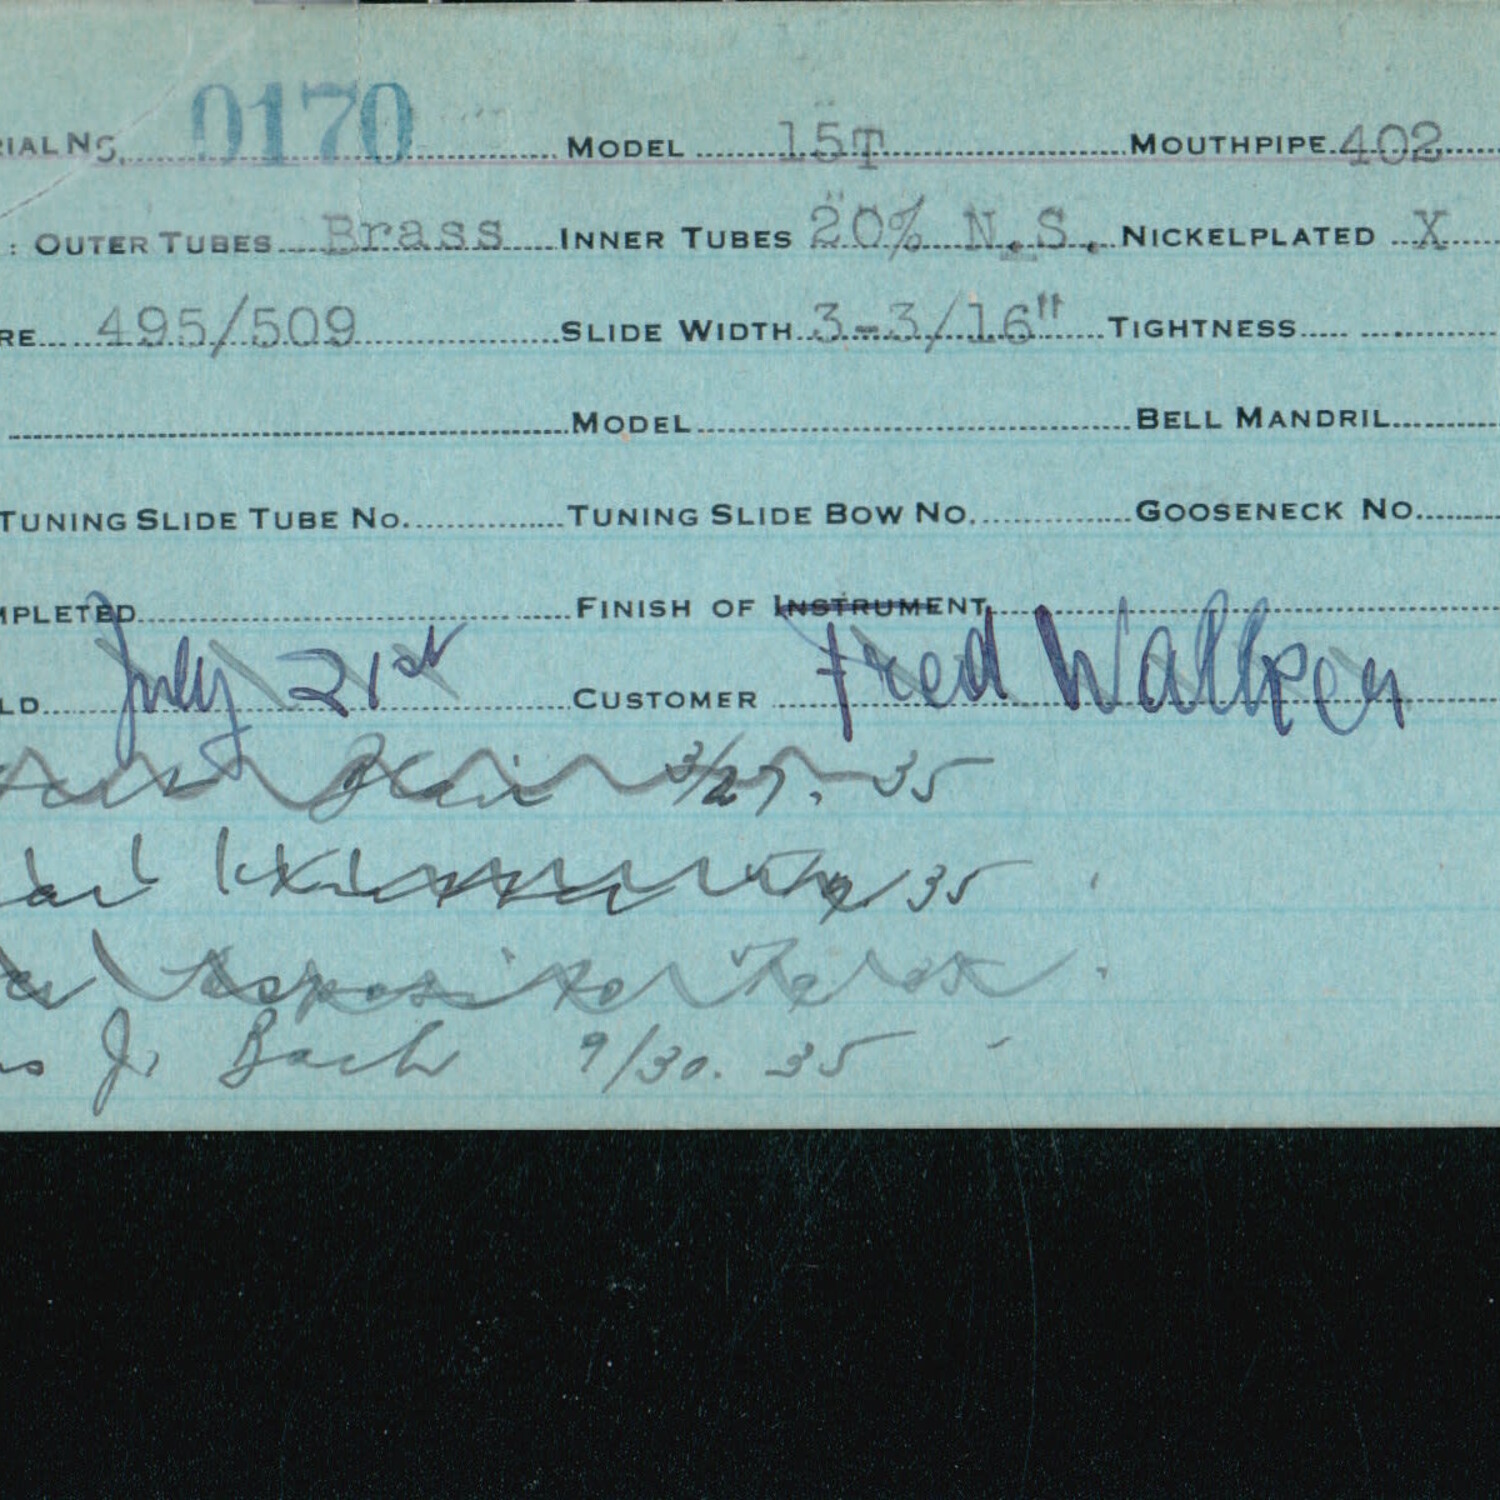 RIAL NO. 0170 MODEL 15T MOUTHPIPE 402
: OUTER TUBES Brass INNER TUBES 20% N.S. NICKELPLATED X
RE 495/509 SLIDE WIDTH 3-3/16" TIGHTNESS
MODEL BELL MANDRIL
TUNING SLIDE TUBE NO. TUNING SLIDE BOW NO. GOOSENECK NO.
MPLETED FINISH OF INSTRUMENT
LD July 21st CUSTOMER Fred Walker
3/27. 35
35
J. Bach 9/30. 35